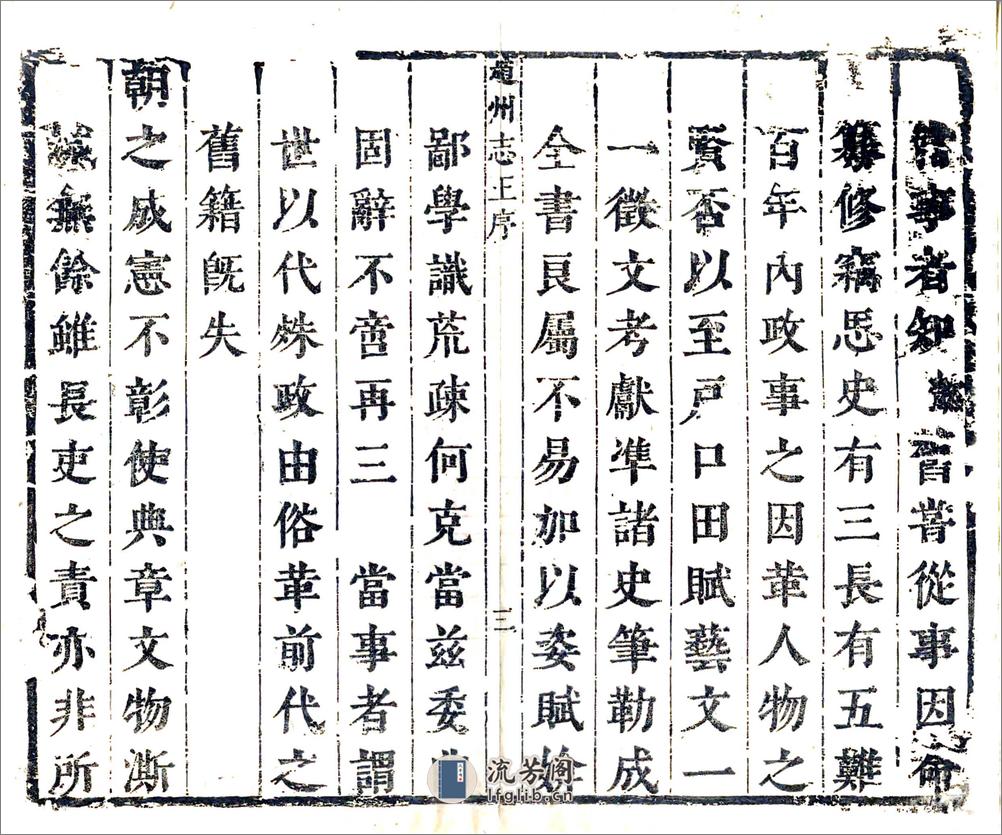 當事者知 嘗從事因命
纂修竊思史有三長有五難
百年內政事之因革人物之
賢否以至戶口田賦藝文一
一徵文考獻準諸史筆勒成
全書良屬不易如以委賦
道州志 序 三
鄙學識荒疎何克當兹委
固辭不啻再三 當事者謂
世以代殊政由俗革前代之
舊籍旣失
朝之成憲不彰使典章文物澌
無餘雖長吏之責亦非所
流芳阁
lfglib.cn